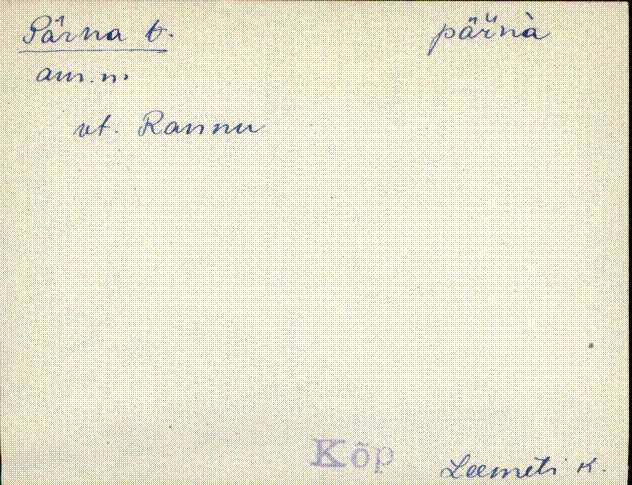 Pärna t. pärnà
am. n.
vt. Rannu
Kõp
Leemeti k.